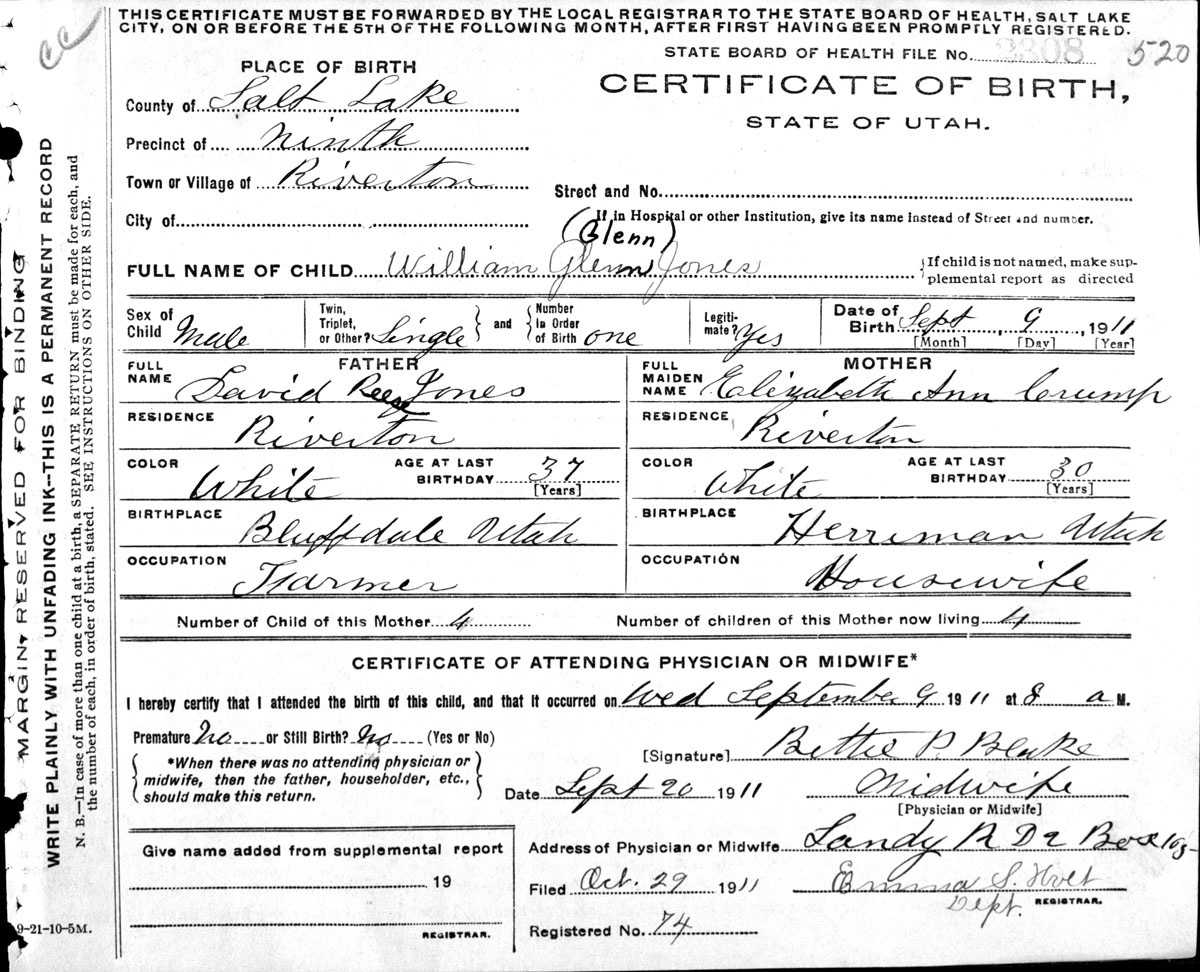 THIS CERTIFICATE MUST BE FORWARDED BY THE LOCAL REGISTRAR TO THE STATE BOARD OF HEALTH, SALT LAKE
CITY, ON OR BEFORE THE 5TH OF THE FOLLOWING MONTH, AFTER FIRST HAVING BEEN PROMPTLY REGISTERED.
cc
STATE BOARD OF HEALTH FILE No. 2308 520
PLACE OF BIRTH
CERTIFICATE OF BIRTH,
STATE OF UTAH.
County of Salt Lake
Precinct of Ninth
Town or Village of Riverton
Street and No.
City of
(If in Hospital or other Institution, give its name instead of Street and number.
(Glenn)
FULL NAME OF CHILD William Glenn Jones
{If child is not named, make sup-
plemental report as directed
Sex of Child Male
Twin, Triplet, or Other? Single } and { Number in Order of Birth one
Legiti-mate? Yes
Date of Birth Sept, 9, 1911
[Month] [Day] [Year]
FATHER
FULL NAME David Reese Jones
RESIDENCE Riverton
COLOR White AGE AT LAST BIRTHDAY 37 [Years]
BIRTHPLACE Bluffdale Utah
OCCUPATION Farmer
MOTHER
FULL MAIDEN NAME Elizabeth Ann Crump
RESIDENCE Riverton
COLOR White AGE AT LAST BIRTHDAY 30 [Years]
BIRTHPLACE Herriman Utah
OCCUPATION Housewife
Number of Child of this Mother 4 Number of children of this Mother now living 4
CERTIFICATE OF ATTENDING PHYSICIAN OR MIDWIFE*
I hereby certify that I attended the birth of this child, and that it occurred on Wed September 9 1911 at 8 a M.
Premature No or Still Birth? No (Yes or No)
{ *When there was no attending physician or
midwife, then the father, householder, etc.,
should make this return. }
[Signature] Bettie P. Blake
Date Sept 20 1911 Midwife
[Physician or Midwife]
Address of Physician or Midwife Sandy R D 2 Box 103
Filed Oct. 29 1911 Emma S. Holt
Dept. REGISTRAR.
Registered No. 74
Give name added from supplemental report
19
REGISTRAR.
MARGIN RESERVED FOR BINDING
WRITE PLAINLY WITH UNFADING INK--THIS IS A PERMANENT RECORD
N. B.—In case of more than one child at a birth, a SEPARATE RETURN must be made for each, and
the number of each, in order of birth, stated. SEE INSTRUCTIONS ON OTHER SIDE.
9-21-10-5M.